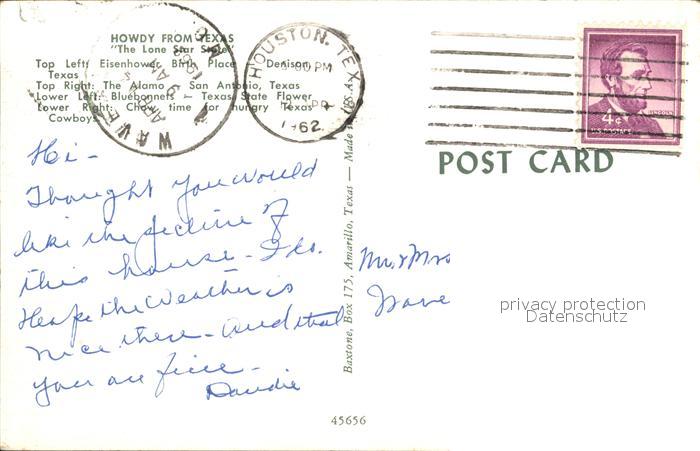 HOWDY FROM TEXAS
"The Lone Star State"
Top Left: Eisenhower Birth Place - Denison,
Texas
Top Right: The Alamo - San Antonio, Texas
Lower Left: Bluebonnets - Texas State Flower
Lower Right: Chow time for hungry Texas
Cowboys
HOUSTON, TEX.
PM
1962
APR
AM
4¢
POST CARD
Hi-
Thought you would
like the picture of
this house - I do.
Hope the Weather is
nice there - and that
you are fine -
Mr & Mrs
Baxtone, Box 175, Amarillo, Texas — Made in U.S.A.
privacy protection
Datenschutz
45656